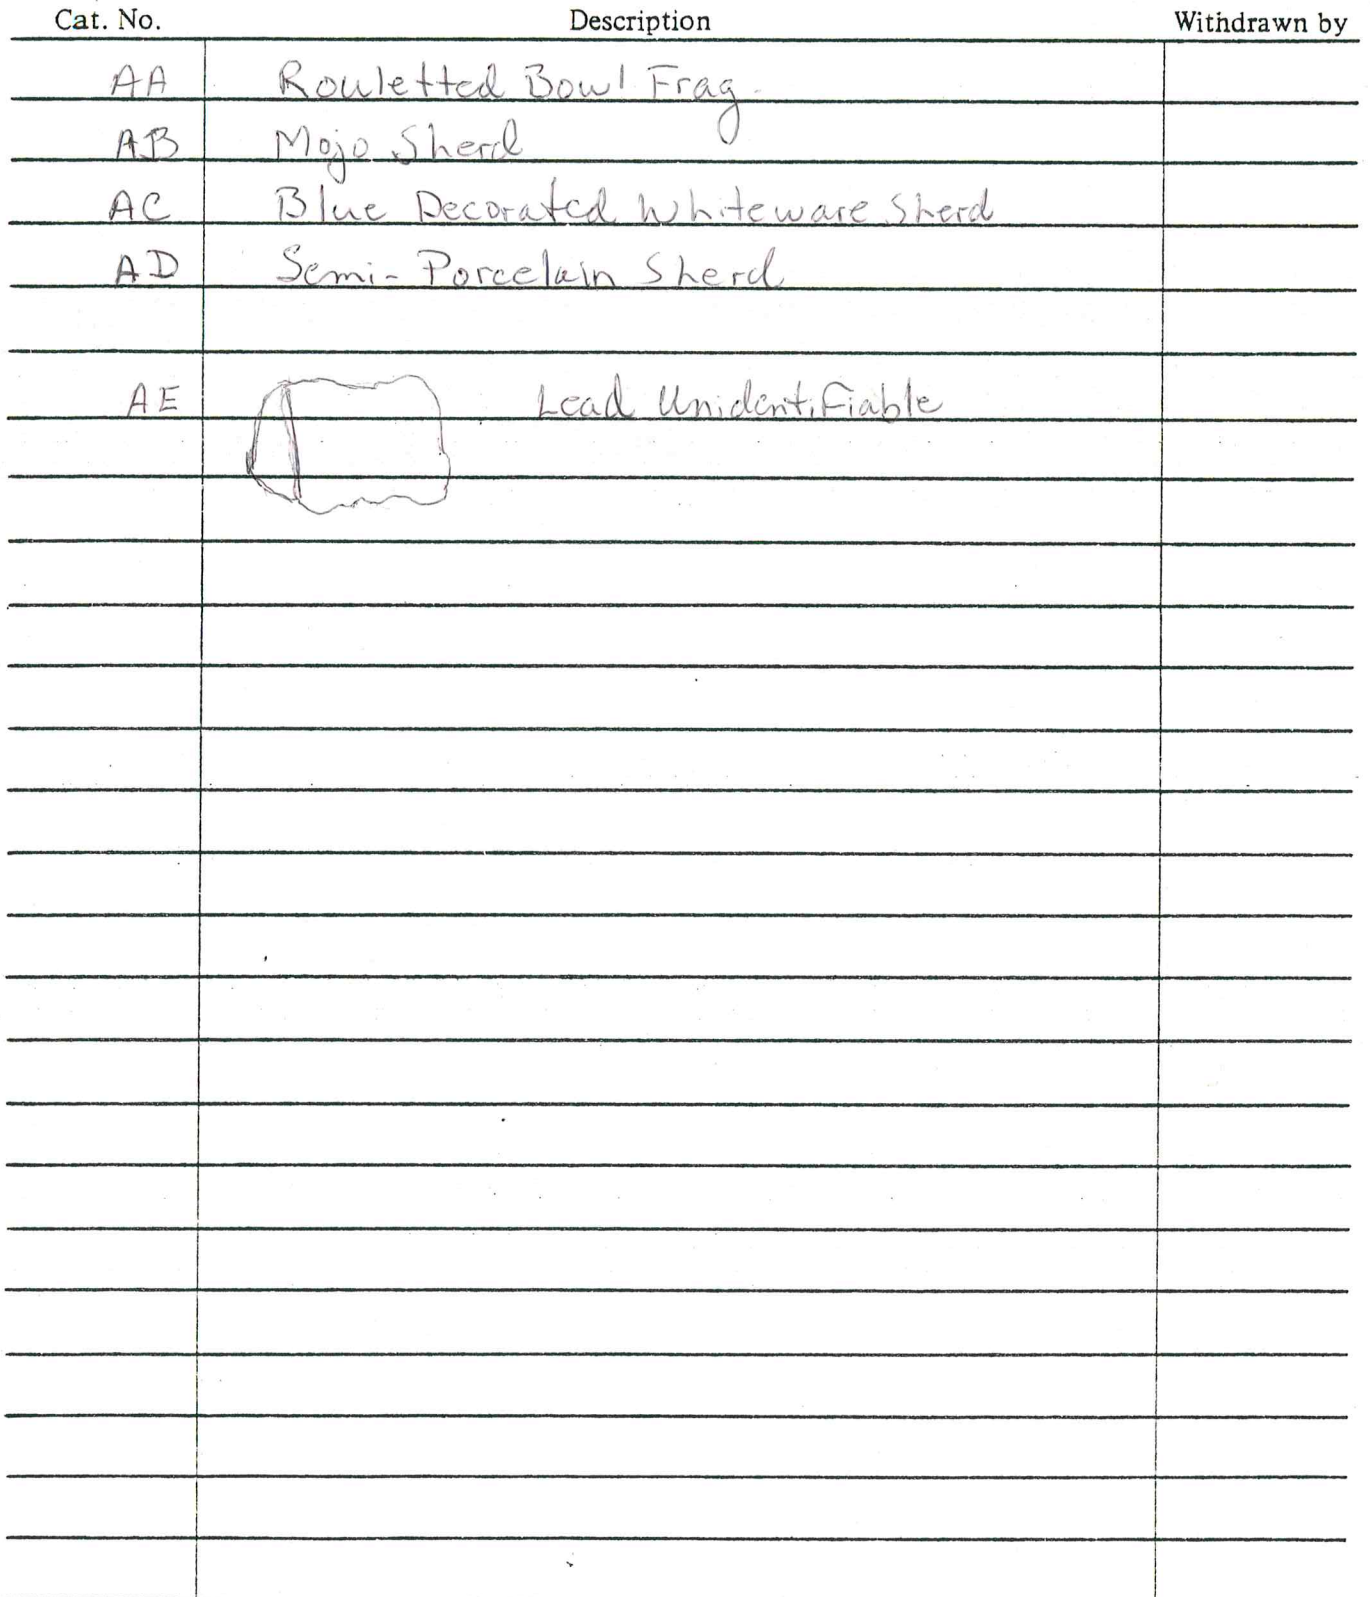 Cat. No. Description Withdrawn by
AA Rouletted Bowl Frag.
AB Mojo Sherd
AC Blue Decorated Whiteware Sherd
AD Semi-Porcelain Sherd
AE Lead Unidentifiable